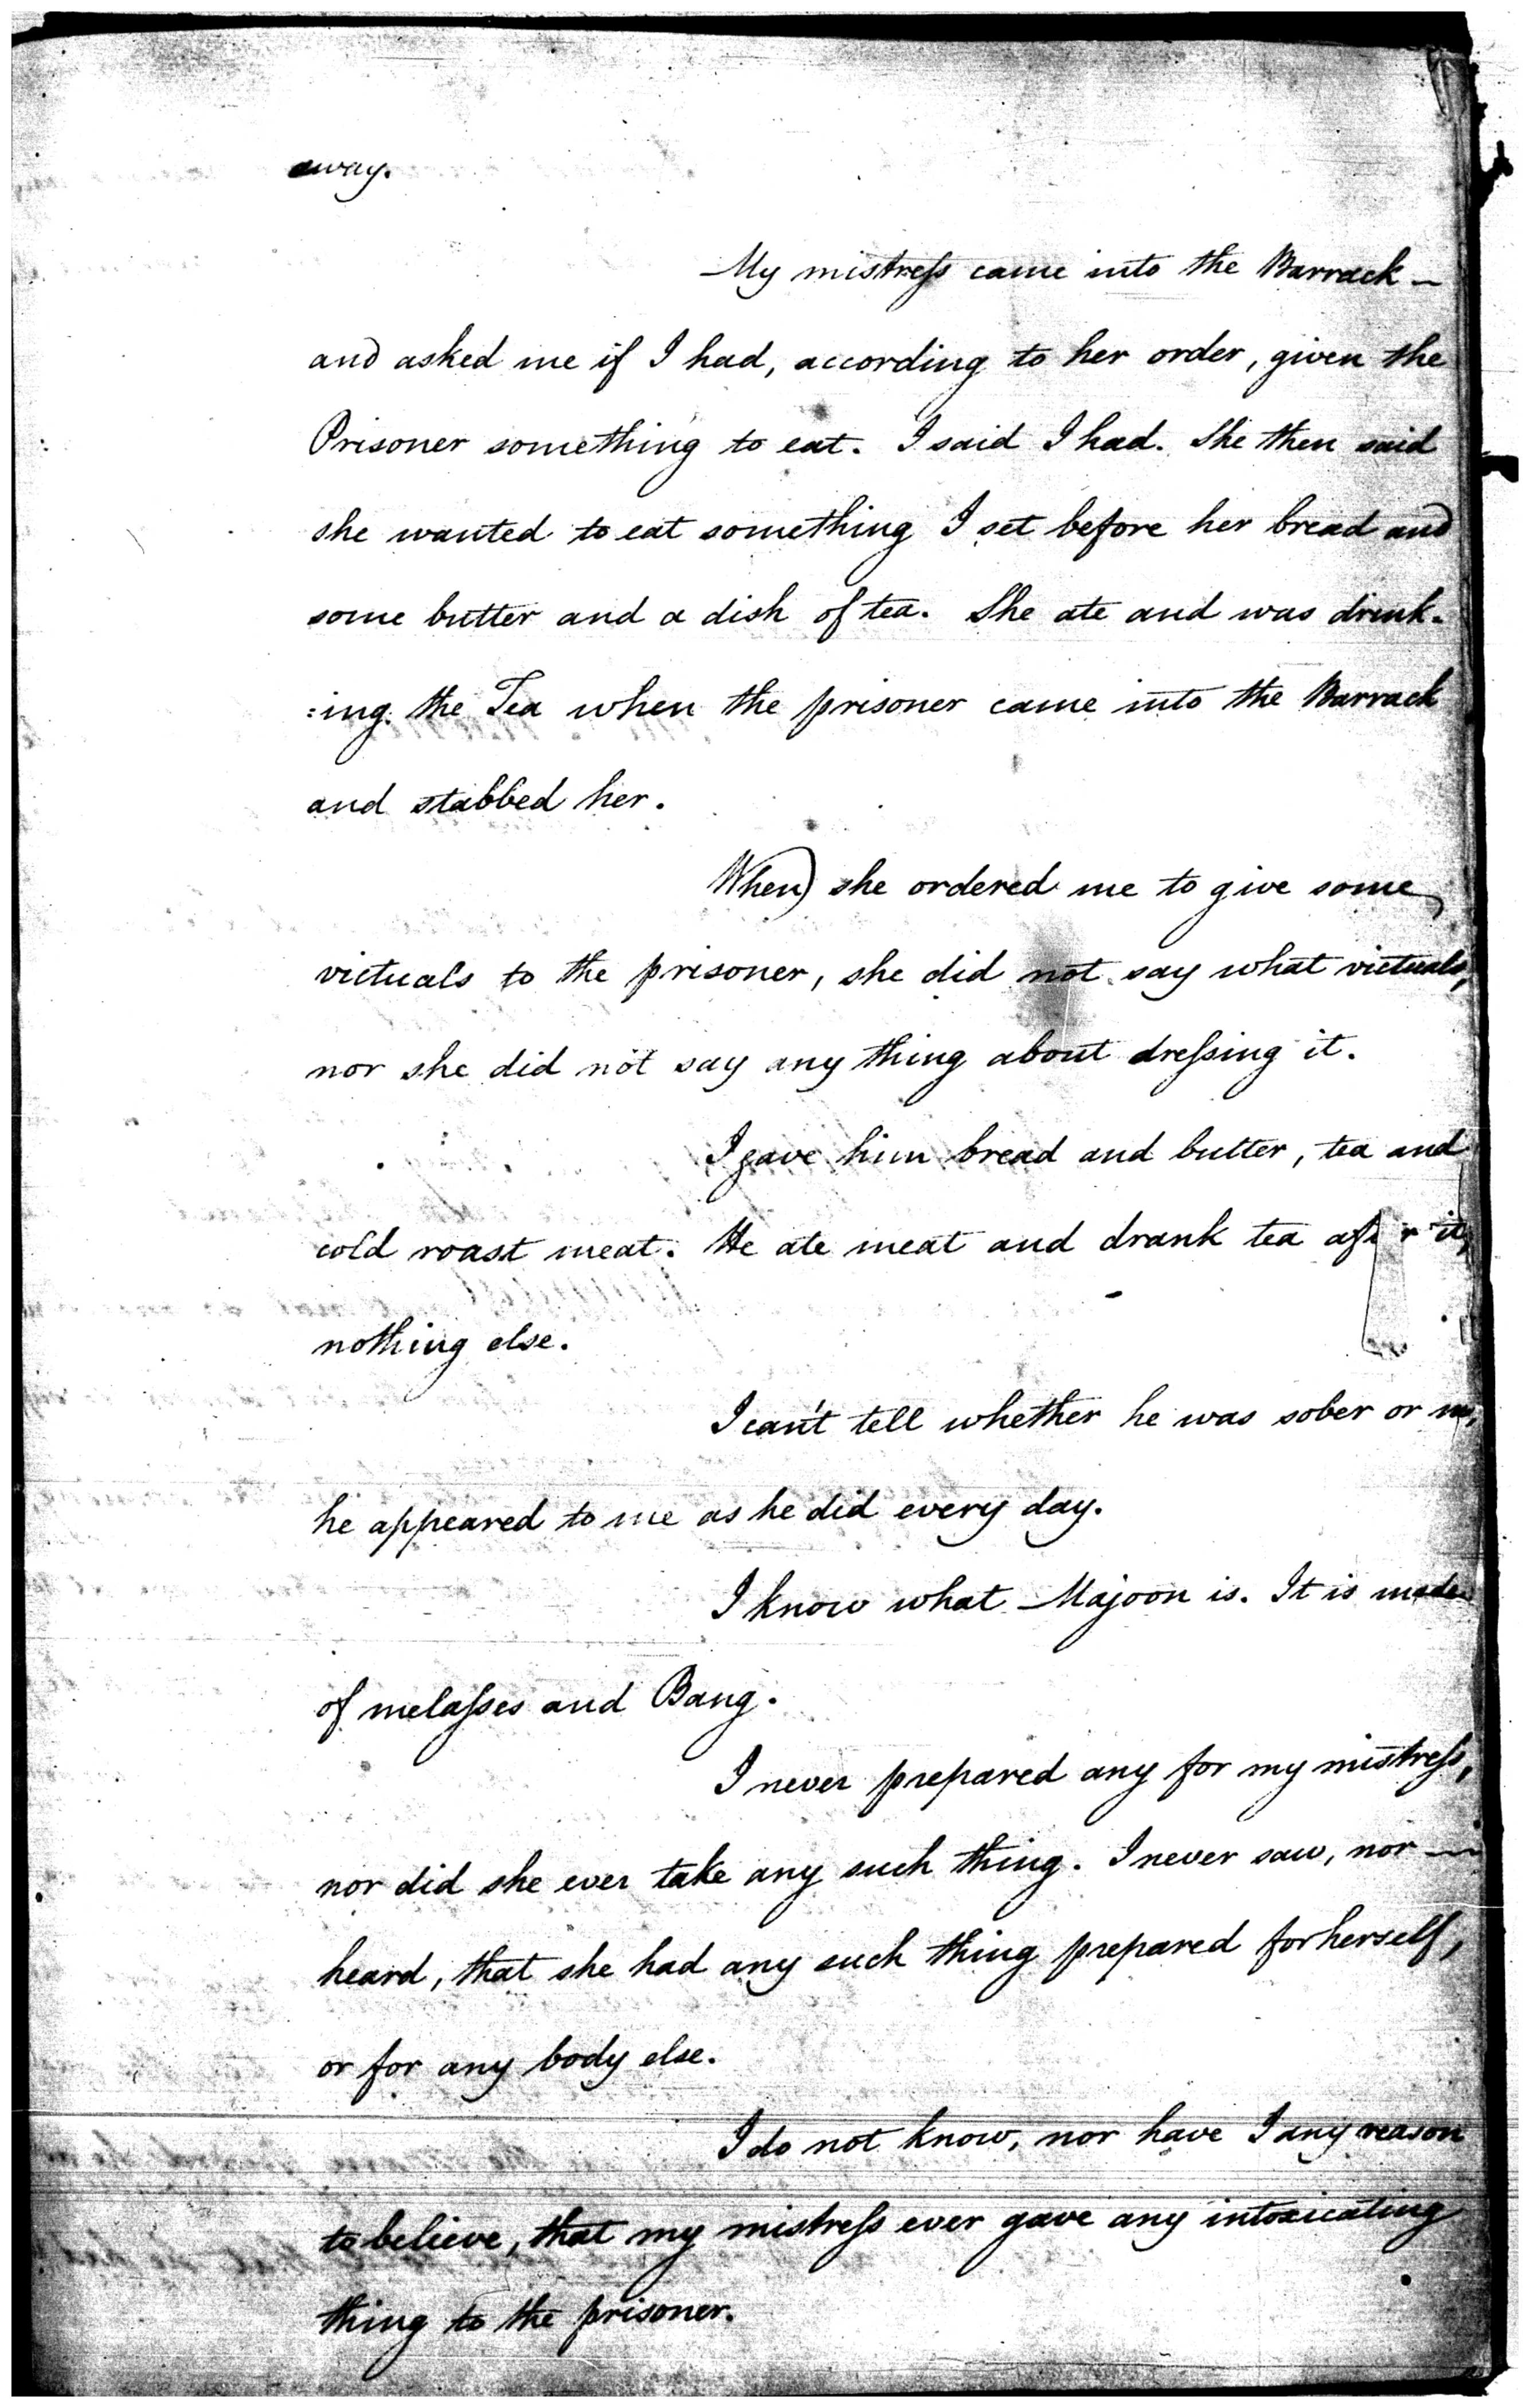 away.
My mistreſs came into the Barrack –
and asked me if I had, according to her order, given the
Prisoner something to eat. I said I had. She then said
she wanted to eat something I set before her bread and
some butter and a dish of tea. She ate and was drink-
:ing the Tea when the prisoner came into the Barrack
and stabbed her.
When she ordered me to give some
victuals to the prisoner, she did not say what victuals,
nor she did not say any thing about dreſsing it.
I gave him bread and butter, tea and
cold roast meat. He ate meat and drank tea after it,
nothing else.
I can't tell whether he was sober or no,
he appeared to me as he did every day.
I know what Majoon is. It is made
of melaſses and Bang.
I never prepared any for my mistreſs,
nor did she ever take any such thing. I never saw, nor –
heard, that she had any such thing prepared for herself,
or for any body else.
I do not know, nor have I any reason
to believe, that my mistreſs ever gave any intoxicating
thing to the prisoner.